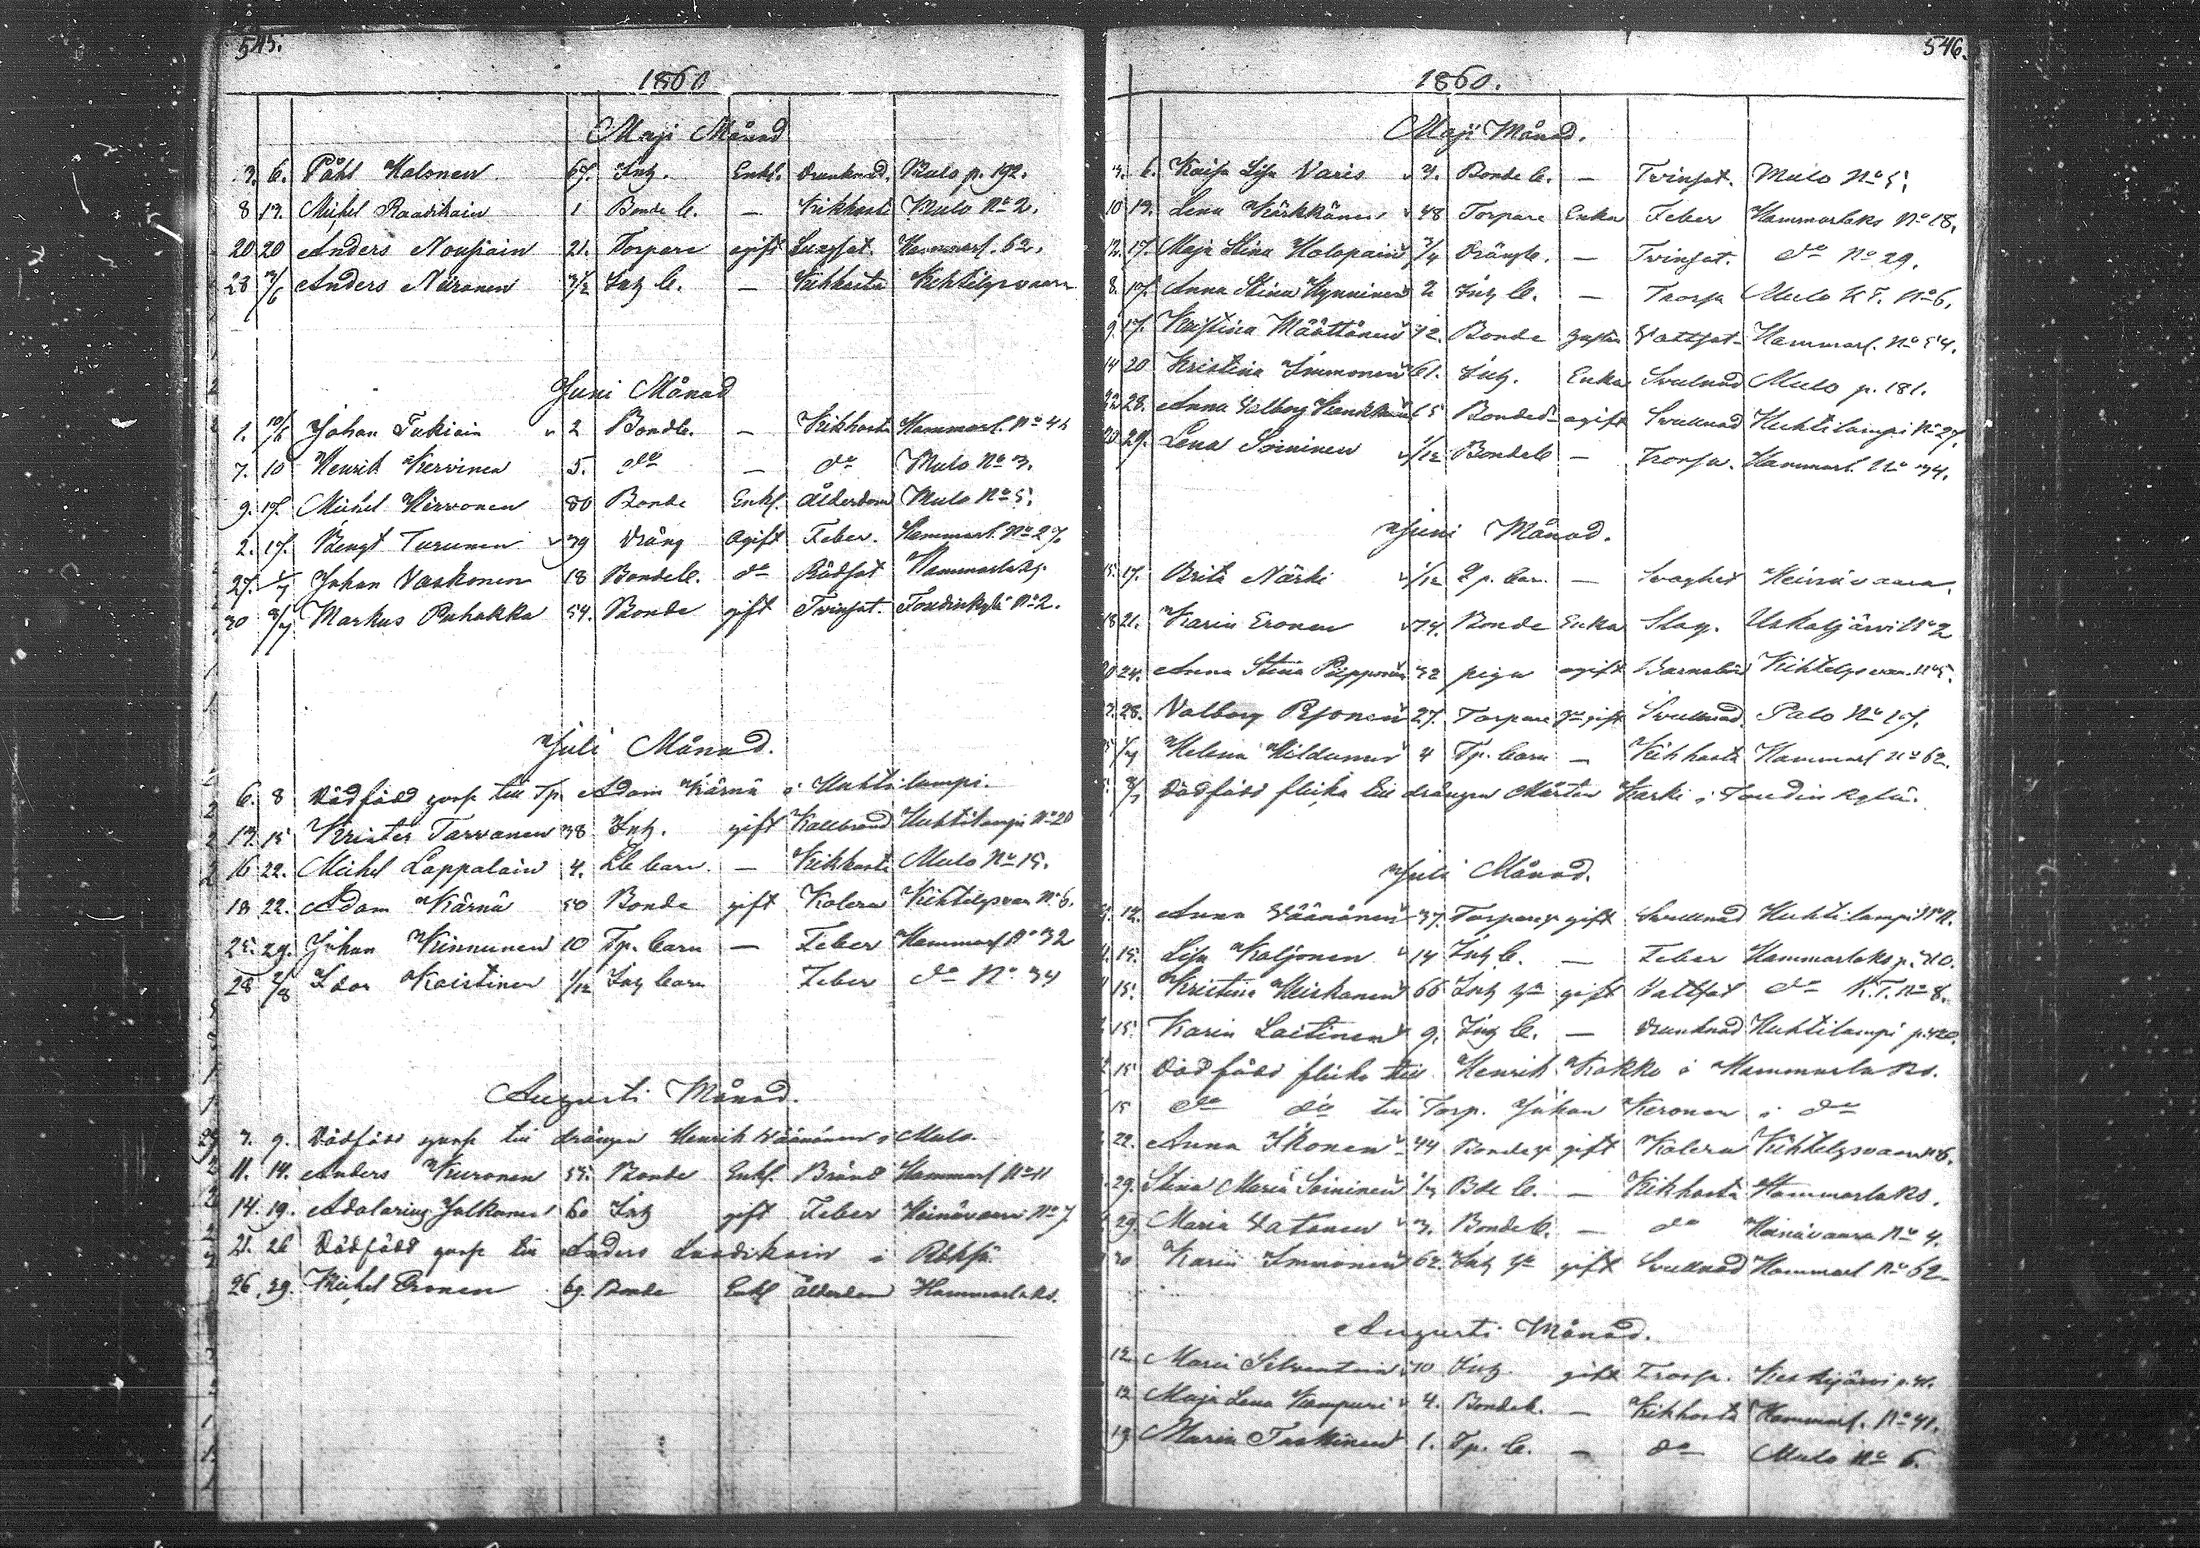 545.
1860
Maji Månad
3. 6. Påhl Holonen 67. Inh. Enkl. Drunknad. Mulo p. 192.
8 13. Michel Raadikain 1 Bonde b. — Kikhosta Mulo No 2.
20 20 Anders Nousiain 21. Torpare ogift Lungsot. Hammarl. 62.
28 3/6 Anders Niironen 3/12 Inh b. — Kikhosta Kihtelysvaara
Juni Månad
1. 10/6 Johan Tukiain 2 Bondb. — Kikhosta Hammarl. No 41
7. 10 Henrik Kervinen 5. do — do Mulo No 3.
9. 17. Michel Hirvonen 80 Bonde Enkl. Ålderdom Mulo No 5.
2. 17. Bengt Turunen 39 Dräng Ogift Feber. Hammarl. No 27.
27. 1/7 Johan Vaskonen 18 Bondeb. do Rödsot Hammarlaks
30 8/7 Markus Puhakka 54. Bonde gift Tvinsot. Toudinkylä No 2.
Juli Månad.
6. 8 Dödfödd goss till Tp. Adam Kärnä i Huhtilampi.
13. 15 Krister Tarvanen 38 Inh. gift Kallbrand Huhtilampi No 20
16 22. Michel Lappalain 4. barn — Kikhosta Mulo No 15.
18 22. Adam Kärnä 50 Bonde gift Kolera Kihtelysvaa No 6.
25. 29. Johan Kinnunen 10 Tp. barn — Feber Hammarl No 32
28 5/8 Idor Koistinen 1/12 Inh barn Feber do No 34
Augusti Månad.
3. 9. Dödfödd goss till drängen Henrik Väänänen i Mulo.
11. 14. Anders Kuronen 55. Bonde Enkl. Bränd Hammarl No 11
14. 19. Adolarius Jolkonen 60 Inh gift Feber Heinävaara No 7
21. 26 Dödfödd goss till Anders Laadikain i
26. 29. Michel Eronen 69. Bonde Enkl Ålderdom Hammarlaks.
546.
1860.
Maji Månad.
6. Kaisa Lisa Varis 3. Bonde b. — Tvinsot. Mulo No 5.
10 13. Lena Kärkkänen 48 Torpare Enka Feber Hammarlaks No 18.
12. 17. Maja Stina Holopain 3/4 Drängb. — Tvinsot. do No 29.
8. 17. Anna Stina Hynninen 2 Inh b. — Trossk Mulo K.T. No 6.
9. 17. Kristina Määttänen 72. Bonde Vattsot Hammarl. No 54.
14 20 Kristina Immonen 61. Inh. Enka Svullnad Mulo p. 181.
22 28. Anna Valborg 65 Bonded ogift Svullnad Huhtilampi No 27.
20. 29. Lena Soininen 1/12 Bondeb — Trossk. Hammarl. No 34.
Juni Månad.
15. 17. Brita Närhi 1/12 barn — Svaghet Heinävaara.
18 21. Karin Eronen 74. Bonde Enka Slag. Uskaljärvi No 2
20 24. Anna Stina Piipponen 32 piga ogift Barnsbörd Kihtelysvaa. No 5.
28. Valborg Ryönen 27. Torpare gift Svullnad Palo No 17.
1/7 Helena Hildunen 4 Tp. barn — Kikhosta Hammarl No 62.
8/7 Dödfödd flicka till drängen Mårten Karki i Toudinkylä.
Juli Månad.
12. Anna Väänänen 37. Torpare gift Svullnad Huhtilampi No 11.
15. Lisa Koljonen 14 Inh b. — Feber Hammarlaks p. 310.
15. Kristina Heiskanen 66 Inh gift Vattsot do K.T. No 8.
15. Karin Laitinen 9. Inh b. — Drunknad Huhtilampi p. 420.
15 Dödfödd flicka till Henrik Kokko i Hammarlaks.
15 do do till Torp. Johan Keronen i do
22. Anna Ikonen 44 Bonde gift Kolera Kihtelysvaara No 6.
29. Stina Maria Soininen Bde b. — Kikhosta Hammarlaks.
29. Maria Vatanen 3. Bondeb. — do Heinävaara No 4.
30 Karin Immonen 62. Inh gift Svullnad Hammarl No 62
Augusti Månad.
12 Maria Silventoin 70 Inh. gift Trossk. Keskijärvi
12 Maja Lena Kampuri 4. Bondeb. — Kikhosta Hammarl. No 41.
19 Maria Taskinen 1. Tp. b. — do Mulo No 6.